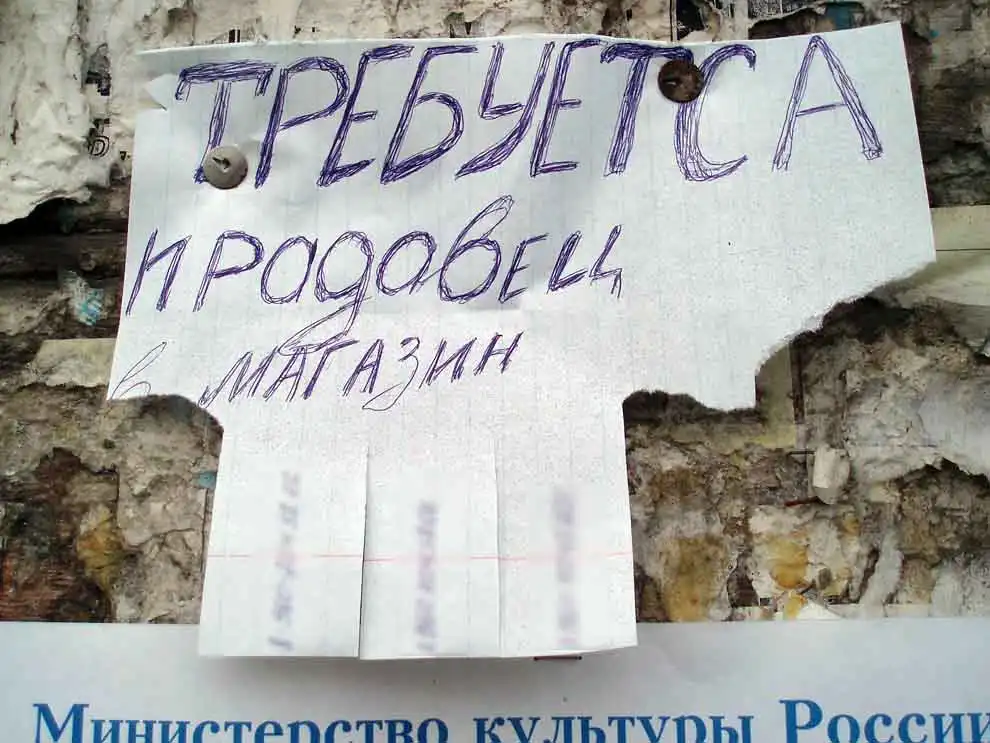 ТРЕБУЕТСА
продовец
в магазин
Министерство культуры России